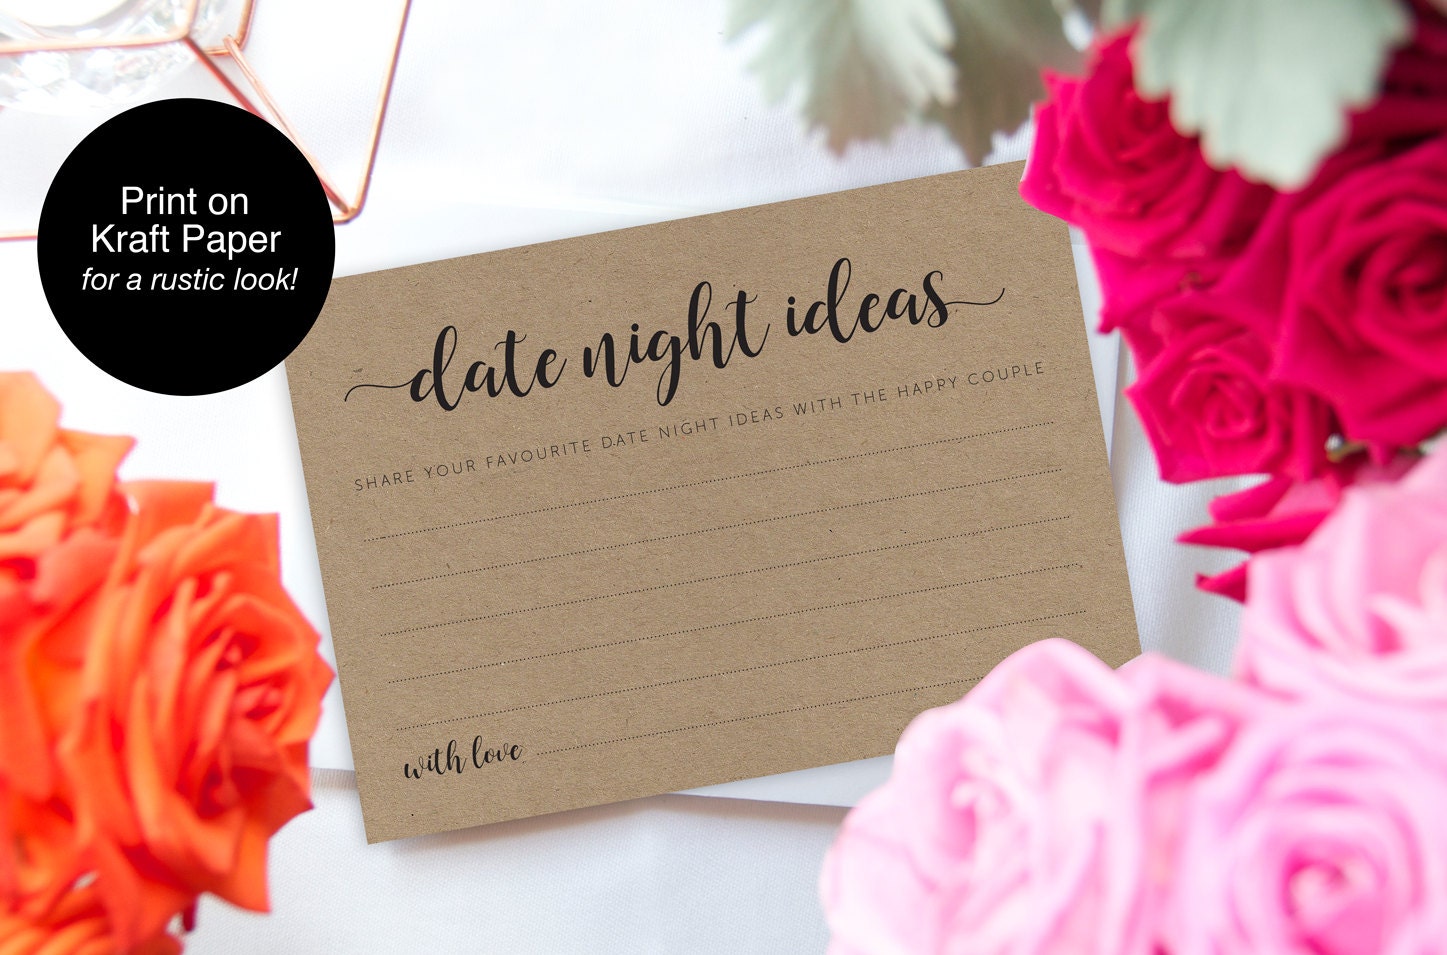 Print on
Kraft Paper
for a rustic look!
date night ideas
SHARE YOUR FAVOURITE DATE NIGHT IDEAS WITH THE HAPPY COUPLE
with love